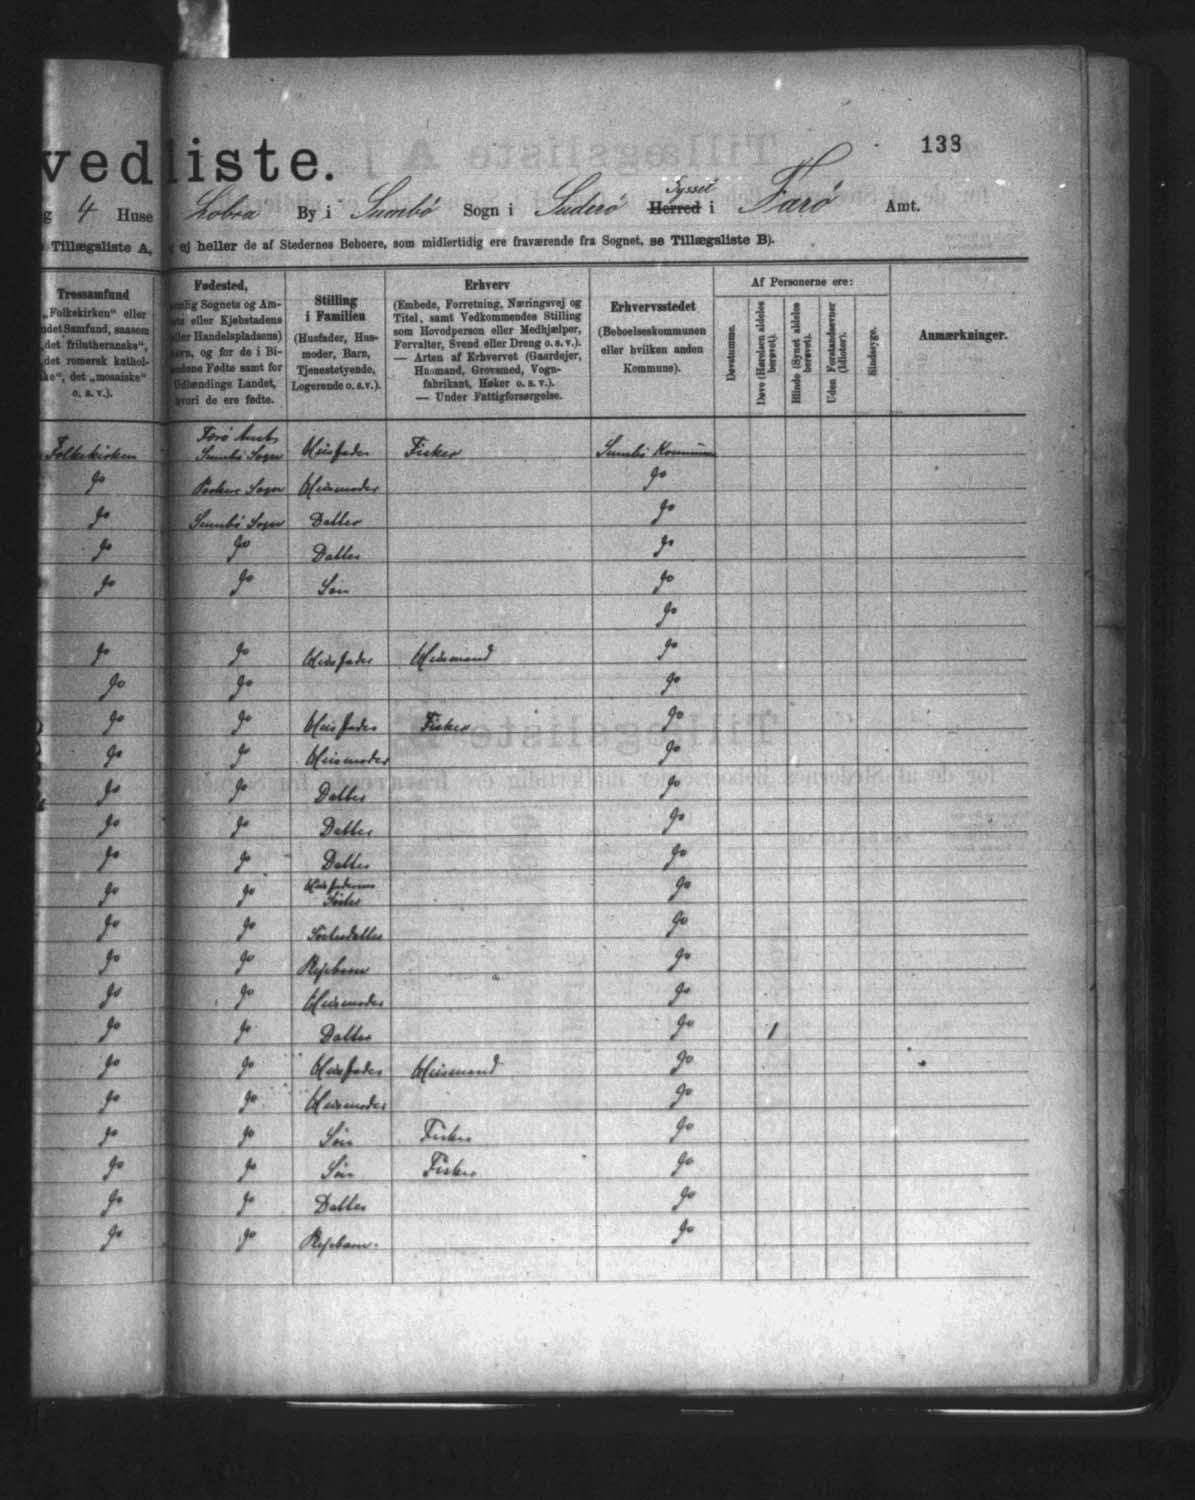 138
vedliste.
g 4 Huse i Lobra By i Sumbö Sogn i Suderö Herred Syssel i Farö Amt.
Tillægsliste A, ej heller de af Stedernes Beboere, som midlertidig ere fraværende fra Sognet, se Tillægsliste B).
Trossamfund
„Folkekirken“ eller
andet Samfund, saasom
„det frilutheranske“,
„det romersk kathol-
ske“, det „mosaiske“
o. s. v.).
Fødested,
nemlig Sognets og Am-
eller Kjøbstadens
eller Handelspladsens)
Navn, og for de i Bi-
landene Fødte samt for
Udlændinge Landet,
hvori de ere fødte.
Stilling
i Familien
(Husfader, Hus-
moder, Barn,
Tjenestetyende,
Logerende o. s. v.).
Erhverv
(Embede, Forretning, Næringsvej og
Titel, samt Vedkommendes Stilling
som Hovedperson eller Medhjælper,
Forvalter, Svend eller Dreng o. s. v.).
— Arten af Erhvervet (Gaardejer,
Husmand, Grovsmed, Vogn-
fabrikant, Høker o. s. v.).
— Under Fattigforsørgelse.
Erhvervsstedet
(Beboelseskommunen
eller hvilken anden
Kommune).
Af Personerne ere:
Døvstumme.
Døve (Hørelsen aldeles
berøvet).
Blinde (Synet aldeles
berøvet).
Uden Forstandsevner
(Idioter).
Sindssyge.
Anmærkninger.
Farö Amt,
Folkekirken Sumbö Sogn Husfader Fisker Sumbö Kommune
do Porkere Sogn Husmoder do
do Sumbö Sogn Datter do
do do Datter do
do do Sön do
do
do do Husfader Husmand do
do do do
do do Husfader Fisker do
do do Husmoder do
do do Datter do
do do Datter do
do do Datter do
do do Husfaderens Söster do
do do Sösterdatter do
do do Plejebarn do
do do Husmoder do
do do Datter do 1
do do Husfader Husmand do
do do Husmoder do
do do Sön Fisker do
do do Sön Fisker do
do do Datter do
do do Plejebarn. do